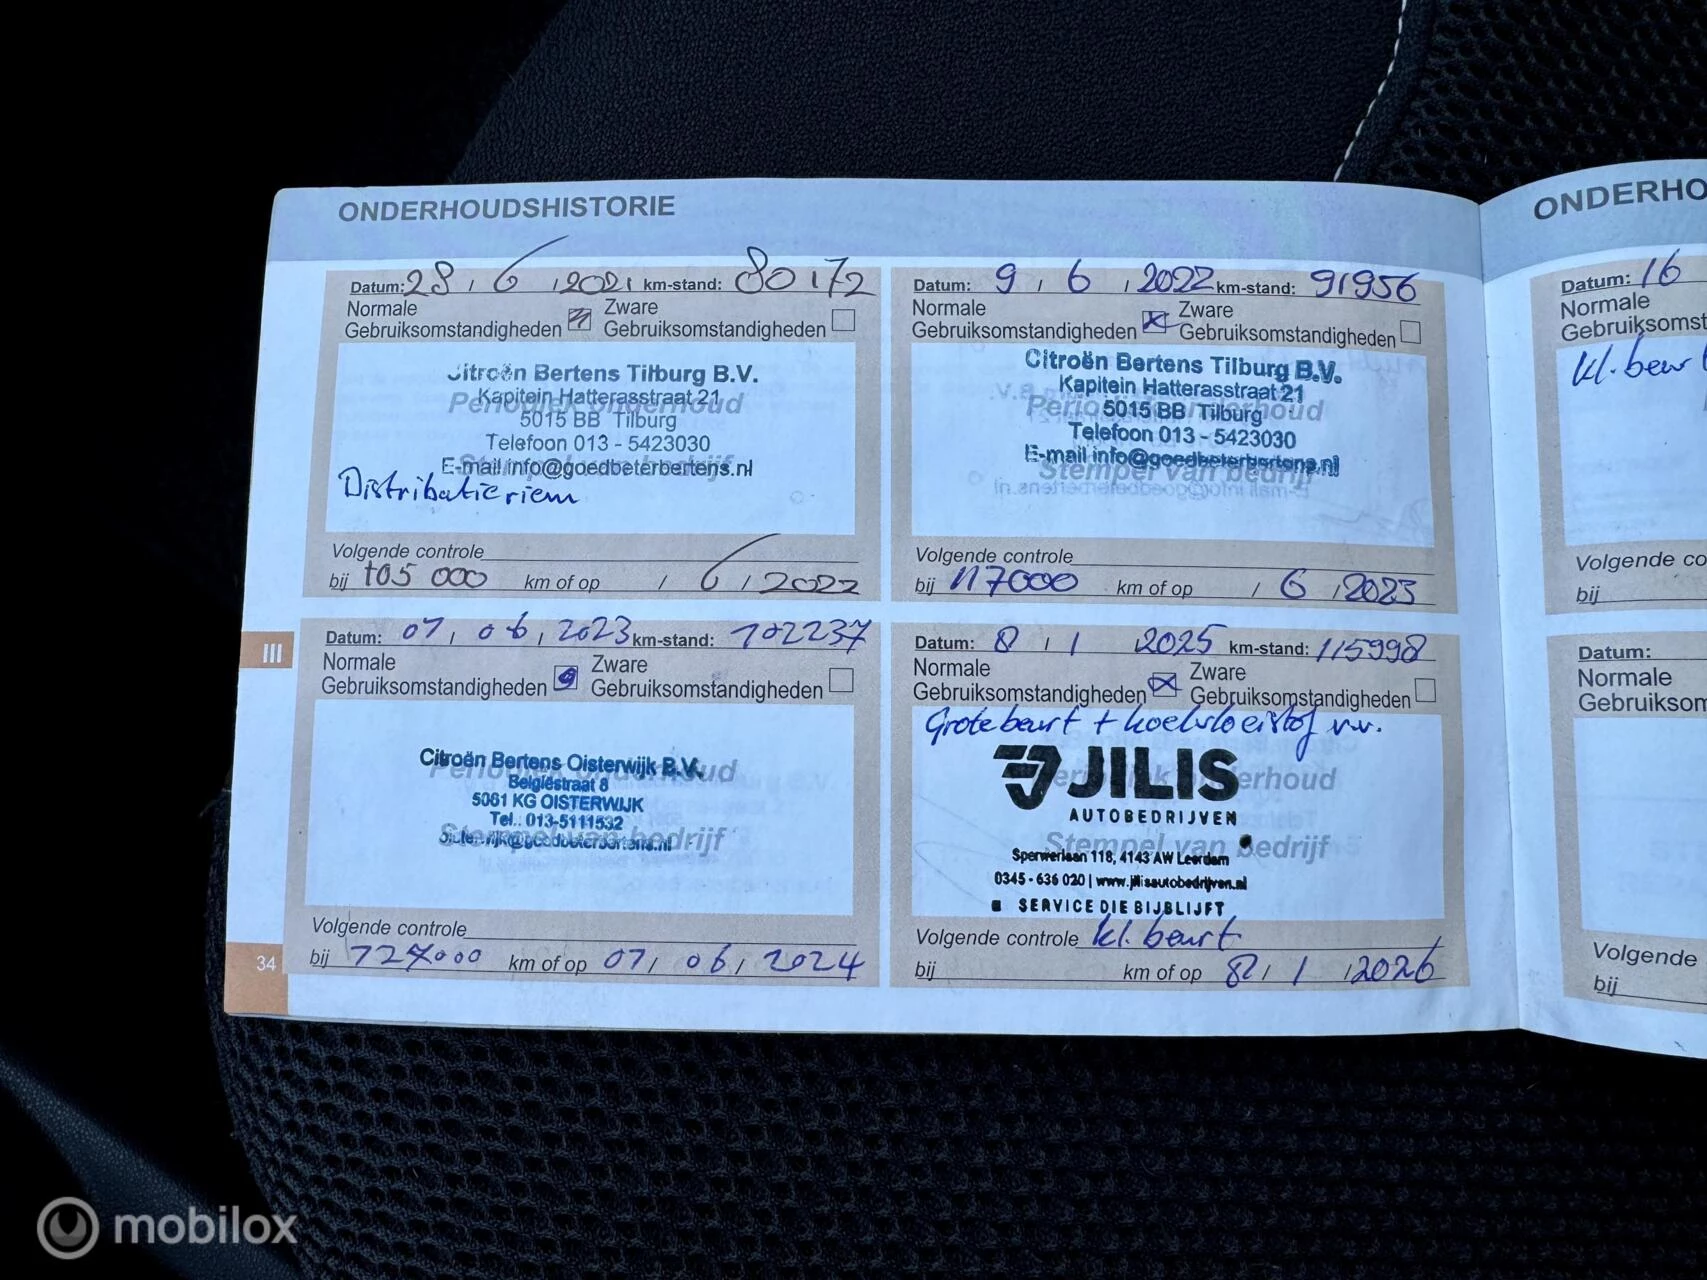 ONDERHOUDSHISTORIE
Datum: 28 / 6 / 2021 km-stand: 80172
Normale Gebruiksomstandigheden Zware Gebruiksomstandigheden
Citroën Bertens Tilburg B.V.
Kapitein Hatterasstraat 21
Periodiek onderhoud
5015 BB Tilburg
Telefoon 013 - 5423030
E-mail info@goedbeterbertens.nl
Stempel van bedrijf
Distributieriem
Volgende controle
bij 105 000 km of op / 6 / 2022
Datum: 9 / 6 / 2022 km-stand: 91956
Normale Gebruiksomstandigheden Zware Gebruiksomstandigheden
Citroën Bertens Tilburg B.V.
Kapitein Hatterasstraat 21
Periodiek onderhoud
5015 BB Tilburg
Telefoon 013 - 5423030
E-mail info@goedbeterbertens.nl
Stempel van bedrijf
Volgende controle
bij 117000 km of op / 6 / 2023
III
Datum: 01 / 06 / 2023 km-stand: 102237
Normale Gebruiksomstandigheden Zware Gebruiksomstandigheden
Citroën Bertens Oisterwijk B.V.
Periodiek onderhoud
Belgiëstraat 8
5061 KG OISTERWIJK
Tel.: 013-5111532
Stempel van bedrijf
Volgende controle
bij 127000 km of op 01 / 06 / 2024
Datum: 8 / 1 2025 km-stand: 115998
Normale Gebruiksomstandigheden Zware Gebruiksomstandigheden
Grote beurt + koelvloeistof vv.
JILIS
Periodiek onderhoud
AUTOBEDRIJVEN
Stempel van bedrijf
Sperwerlaan 118, 4143 AW Leerdam
0345 - 636 020 | www.jilisautobedrijven.nl
SERVICE DIE BIJBLIJFT
Volgende controle kl. beurt
bij km of op 8 / 1 / 2026
34
ONDERHO
Datum: 16
Normale
Gebruiksomst
kl. beur
Volgende co
bij
Datum:
Normale
Gebruiksom
Volgende
bij
mobilox